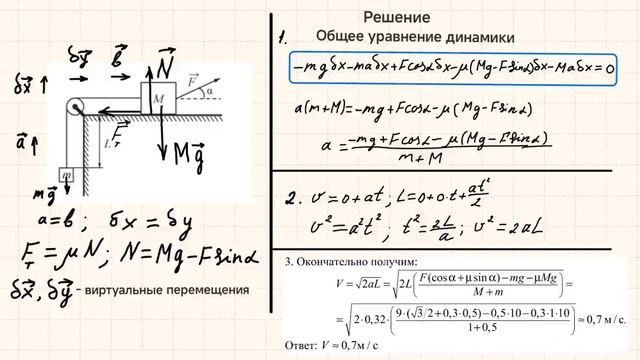 δy⃗ b⃗ N⃗
δx⃗ F⃗
M α
a⃗ F⃗т L
Mg⃗
m
mg⃗
a=b; δx=δy
Fт=μN; N=Mg-Fsinα
δx⃗, δy⃗ - виртуальные перемещения
Решение
1. Общее уравнение динамики
-mgδx-maδx+Fcosαδx-μ(Mg-Fsinα)δx-Maδx=0
a(m+M)=-mg+Fcosα-μ(Mg-Fsinα)
a = (-mg+Fcosα-μ(Mg-Fsinα))/(m+M)
2. v=0+at; L=0+0·t+at²/2
v²=a²t²; t²=2L/a; v²=2aL
3. Окончательно получим:
V = √2aL = √(2L((F(cosα+μsinα)-mg-μMg)/(M+m))) =
= √(2·0,32·((9·(√3/2+0,3·0,5)-0,5·10-0,3·1·10)/(1+0,5))) ≈ 0,7 м/с.
Ответ: V ≈ 0,7м/с